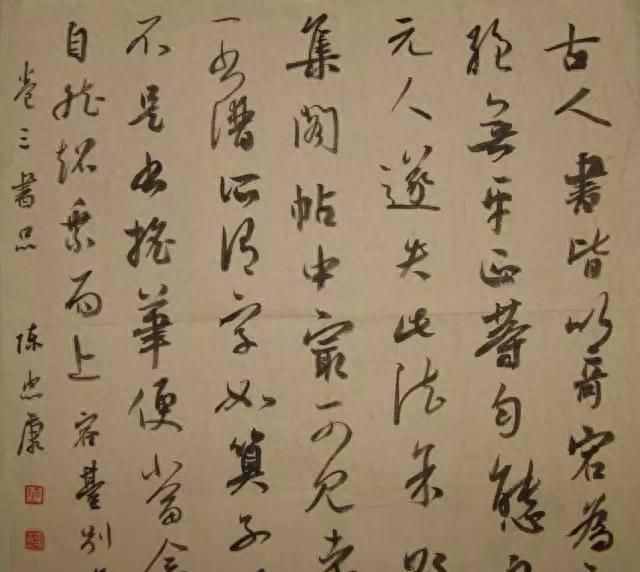 古人書皆以奇宕為
絕無平正等勻態
元人遂失此法余
集閣帖中最可見
一所謂字如算子
不是書搖筆便當念
自然超乘而上 容臺別
卷三書品 陳忠康